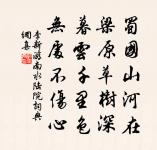 蜀國山河在
梁原草樹深
暮雲千里色
無處不傷心
李新游南水陸院詞典
網集